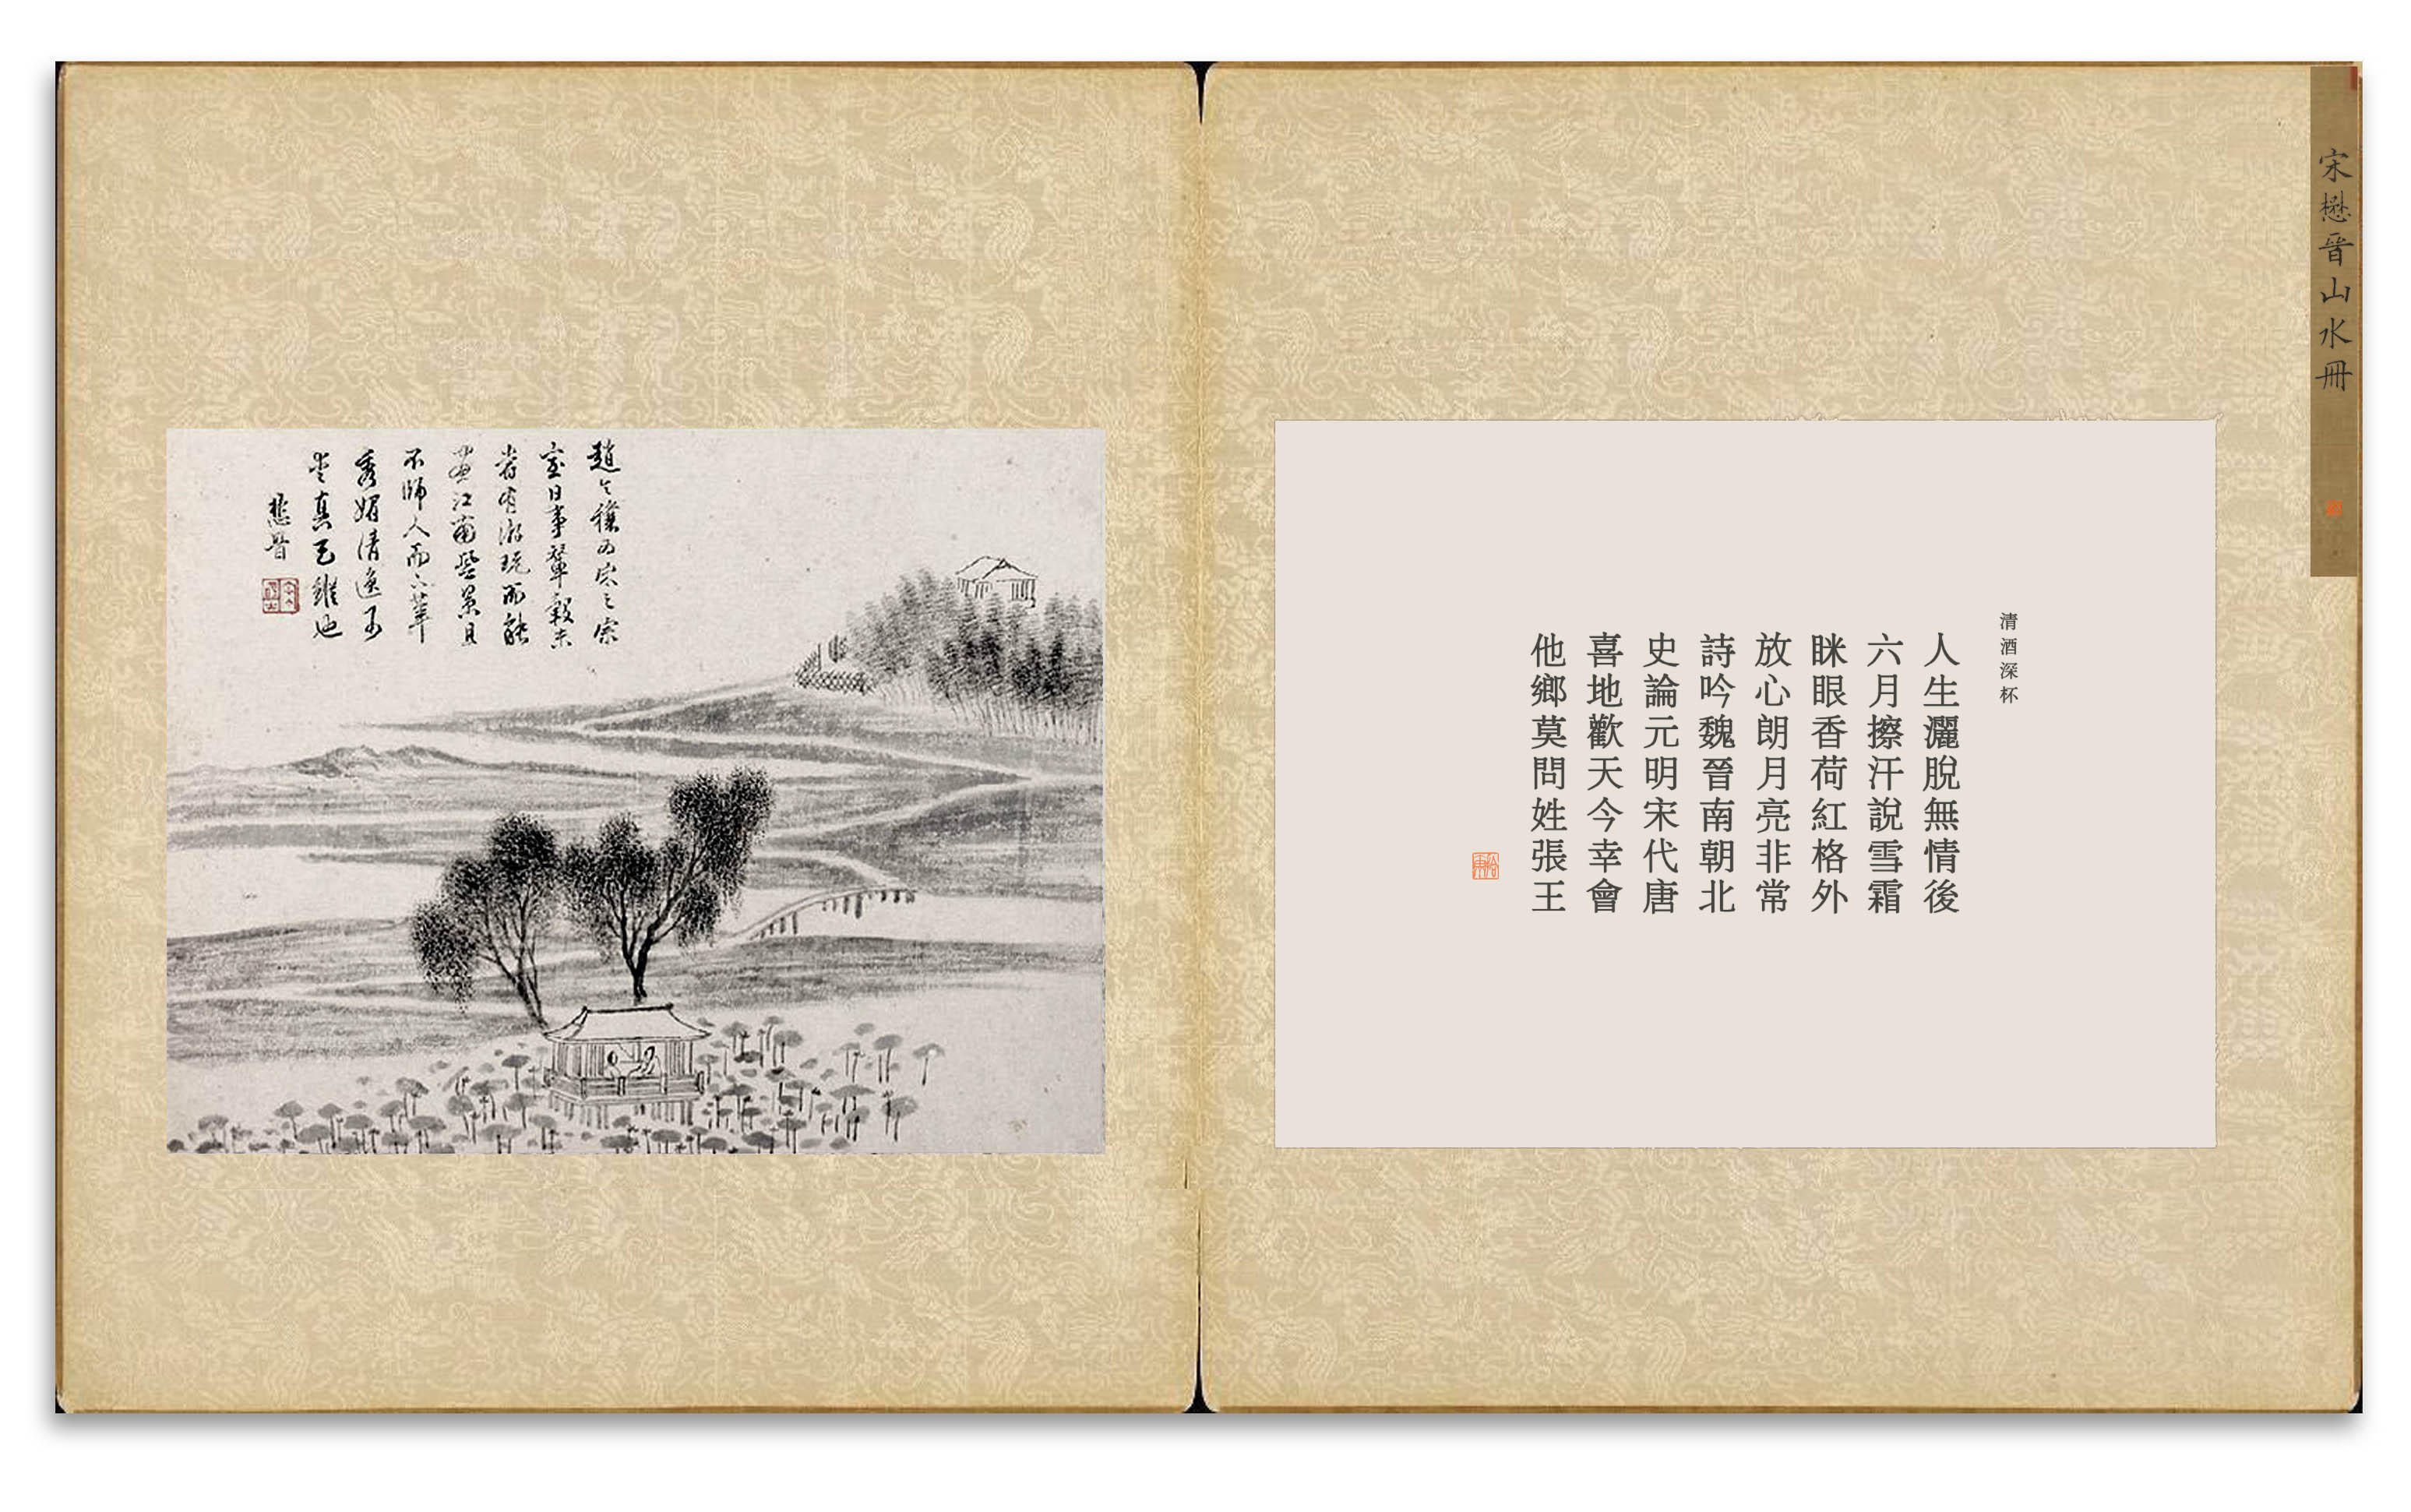 宋懋晉山水冊
清酒深杯
人生灑脫無情後
六月擦汗說雪霜
眯眼香荷紅格外
放心朗月亮非常
詩吟魏晉南朝北
史論元明宋代唐
喜地歡天今幸會
他鄉莫問姓張王
趙令穰為宋之宗
室日事輦轂未
嘗有游玩而能
畫江南壑景且
不師人而
秀媚清遠可
真
懋晉